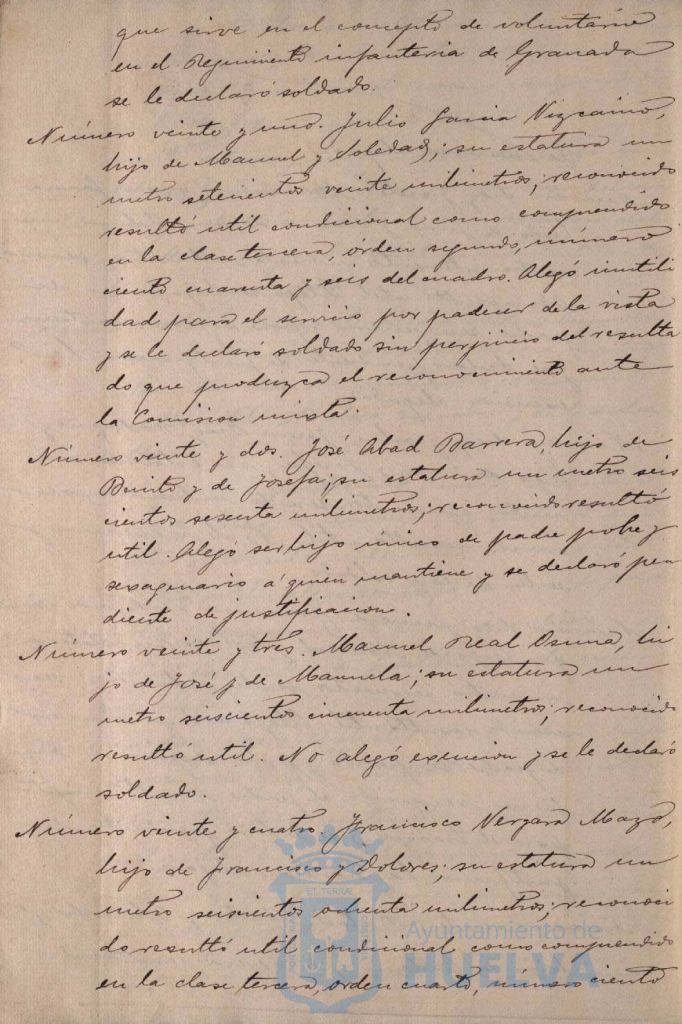 que sirve en el concepto de voluntario
en el Regimiento infanteria de Granada
se le declaró soldado.
Número veinte y uno. Julio Garcia Vizcaino,
hijo de Manuel y Soledad; su estatura un
metro setecientos veinte milimetros; reconocido
resultó util condicional como comprendido
en la clase tercera, orden segundo, número
ciento cuarenta y seis del cuadro. Alegó inutili
dad para el servicio por padecer de la vista
y se le declaró soldado sin perjuicio del resulta
do que produzca el reconocimiento ante
la Comision mixta.
Número veinte y dos. José Abad Barrera, hijo de
Benito y de Josefa; su estatura un metro seis
cientos sesenta milimetros; reconocido resultó
util. Alegó ser hijo único de padre pobre y
sexagenario á quien mantiene y se declaró pen
diente de justificacion.
Número veinte y tres. Manuel Real Osuna, hi
jo de José y de Manuela; su estatura un
metro seiscientos cincuenta milimetros; reconocido
resultó util. No alegó exencion y se le declaró
soldado.
Número veinte y cuatro. Francisco Vergara Mazo,
hijo de Francisco y Dolores; su estatura un
metro seiscientos ochenta milimetros; reconoci
do resultó util condicional como comprendido
en la clase tercera, orden cuarto, número ciento
ET TERRÆ
Ayuntamiento de
HUELVA